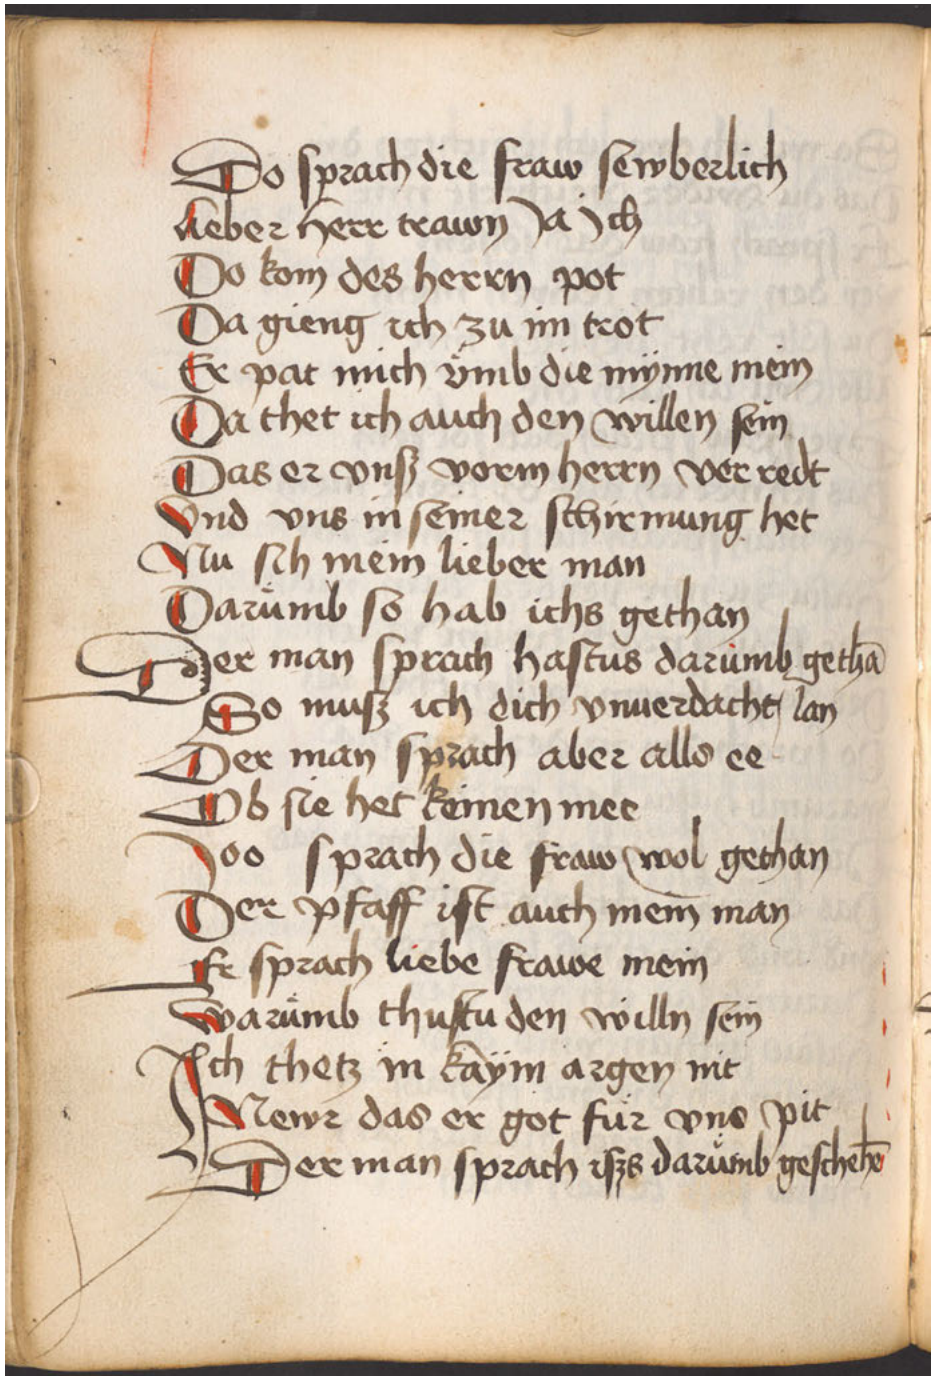 Do sprach die fraw sewberlich
lieber herr trawn Ja Jch
Do kom des herrn pot
Da gieng ich zu im trot
Er pat mich vmb die mÿnne mein
Da thet ich auch den willen sein
Das er vnsz vorm herrn ver redt
Vnd vns in seiner schirmung het
Nu sih mein lieber man
Darümb so hab ichs gethan
Der man sprach hastus darümb gethā
So musz ich dich vnuerdacht lan
Der man sprach aber alls ee
Ob sie het keinen mee
Joo sprach die fraw wol gethan
Der pfaff ist auch mein man
Er sprach liebe frawe mein
Warümb thustu den willn sein
Jch thetz in kaÿm argen nit
Newr das er got für vns pit
Der man sprach iszs darümb geschehē